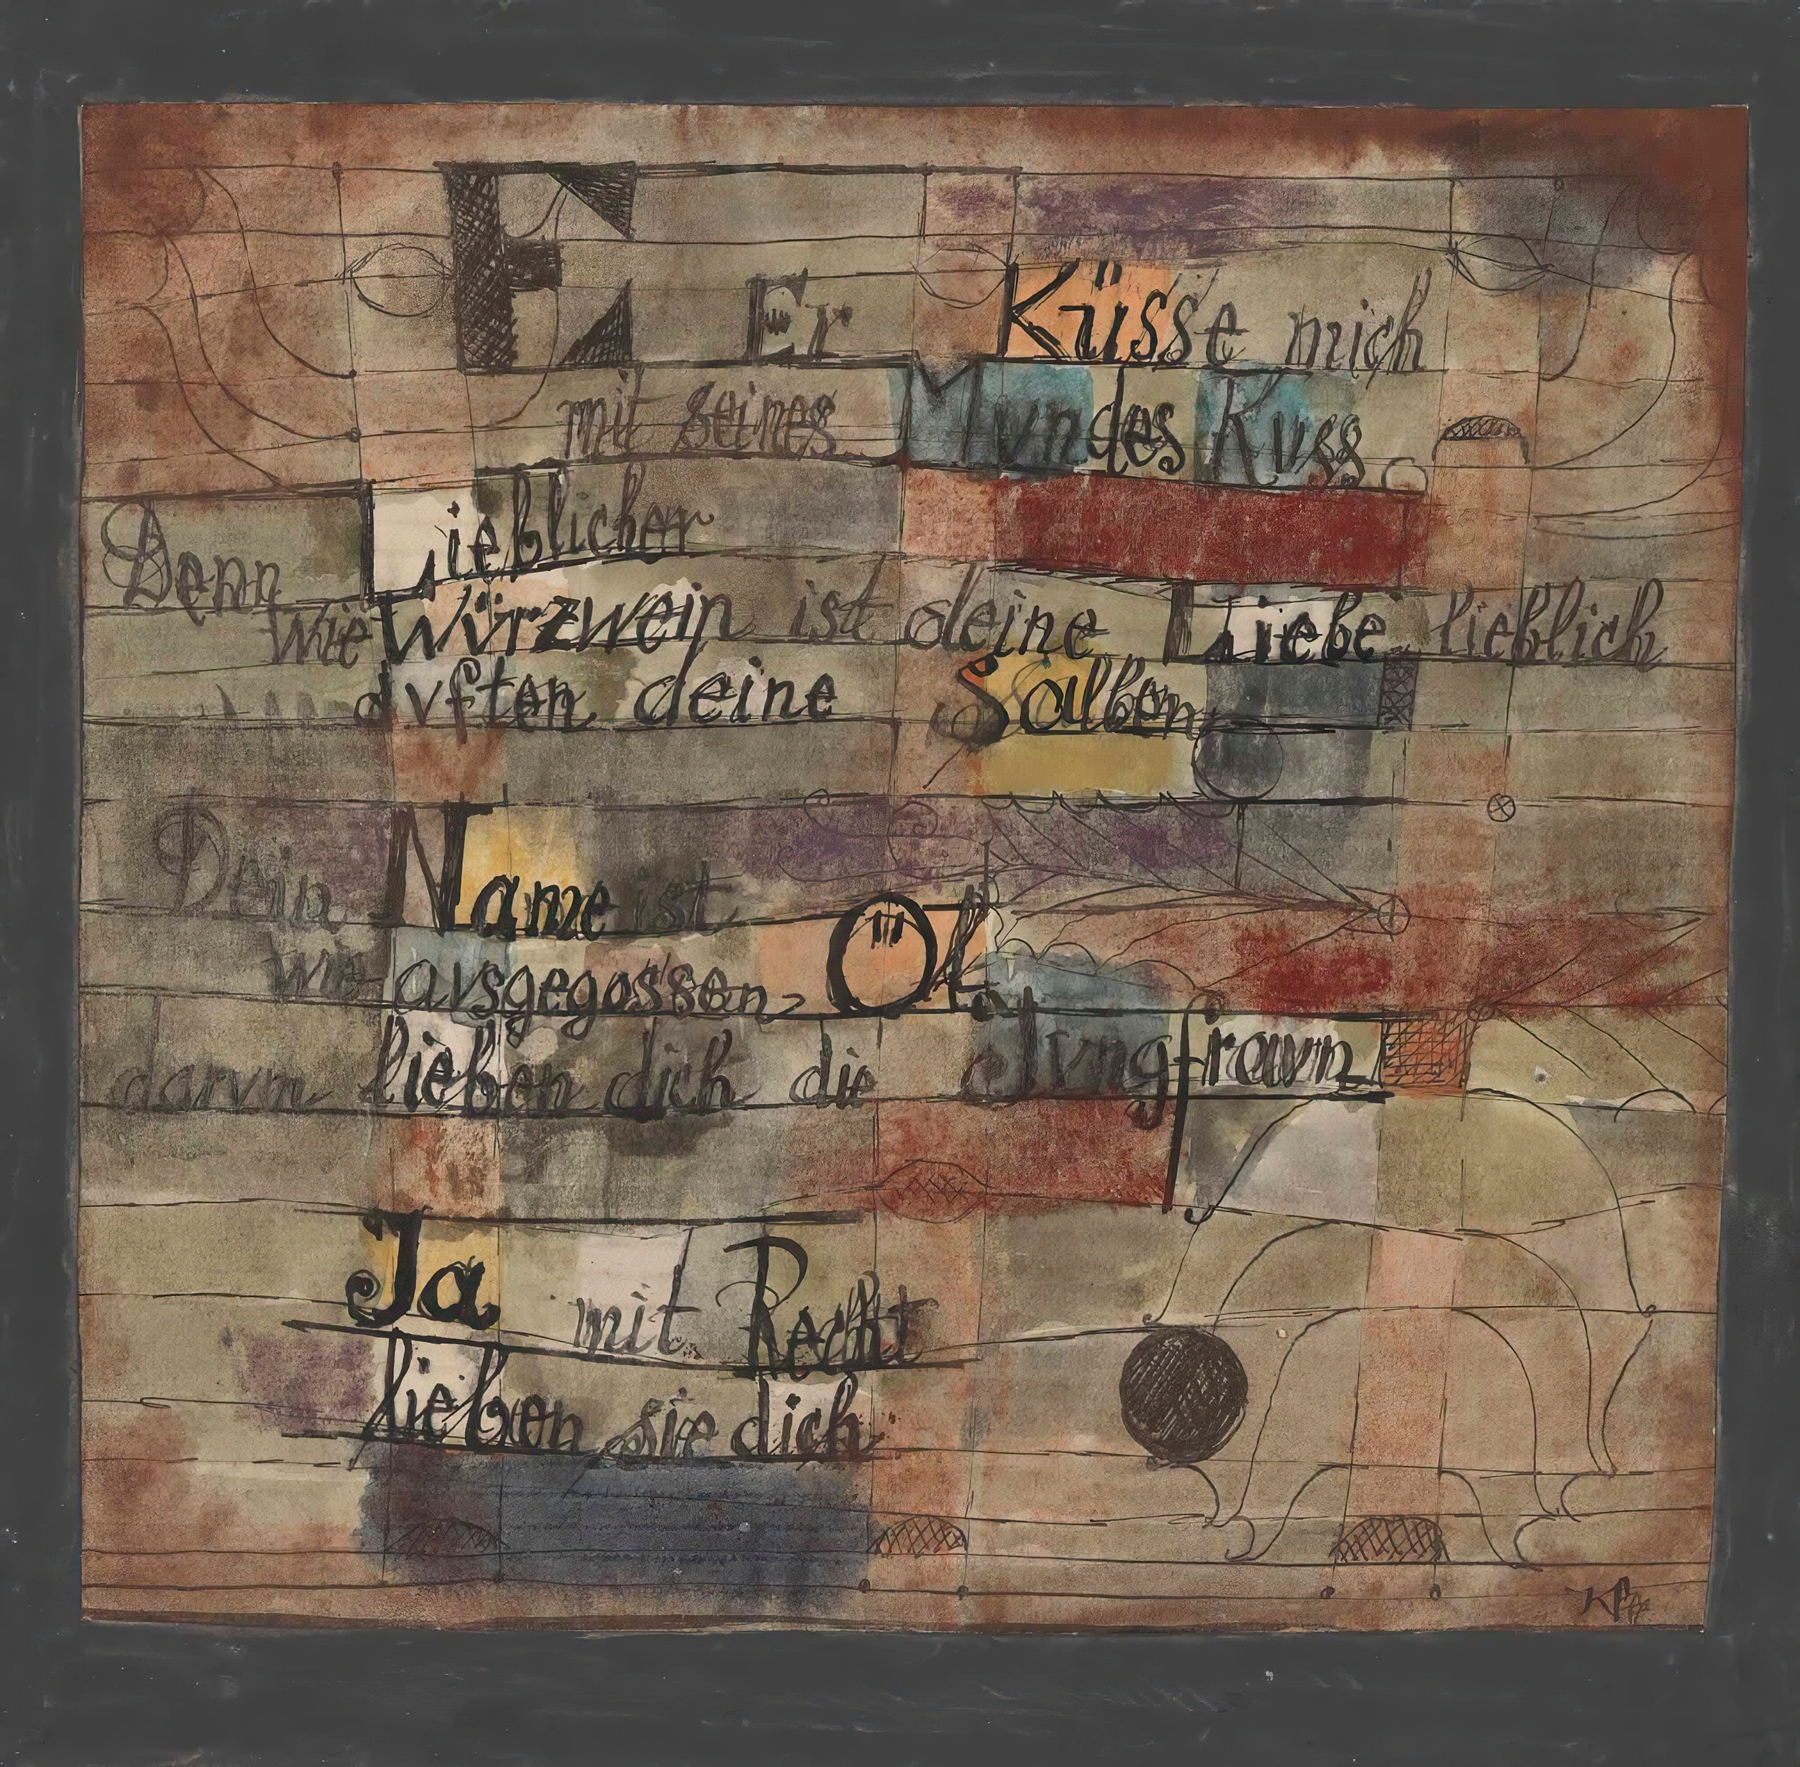 E Er Küsse mich
mit seines Mundes Kuss
Denn Lieblicher
wie Würzwein ist deine Liebe lieblich
dvften deine Salben
Dein Name ist
wie avsgegossen Öl
darvm lieben dich die Jvngfravn
Ja mit Recht
lieben sie dich